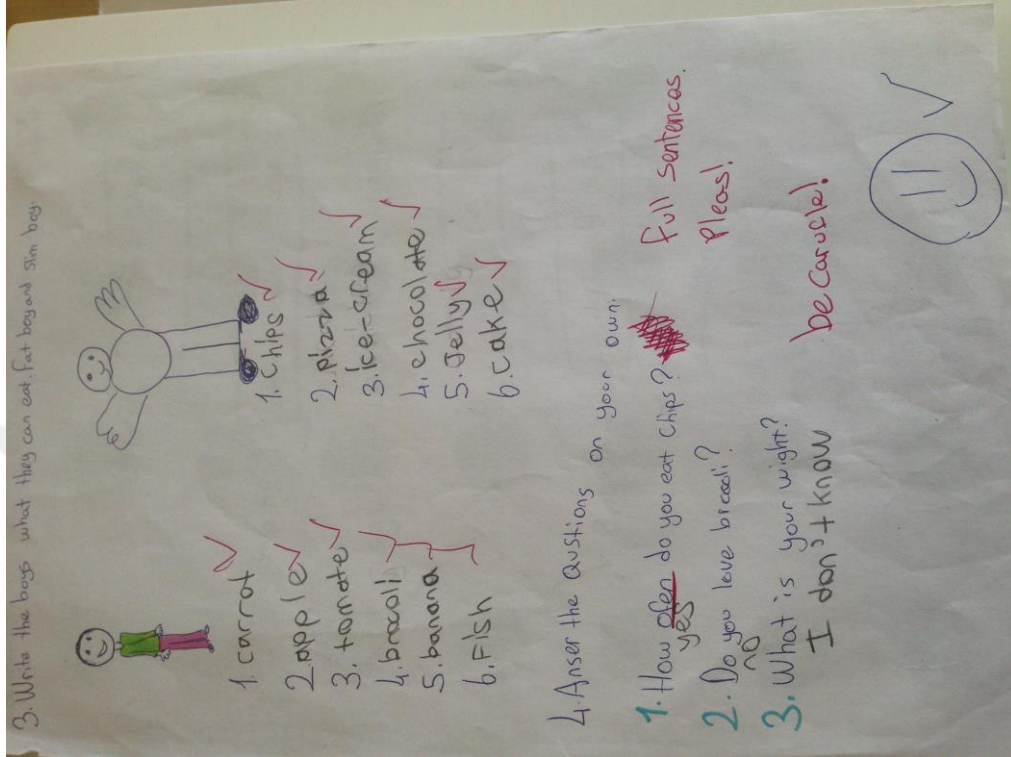 3. Write the boys what they can eat. Fat boy and slim boy.
1. carrot
2. apple
3. tomate
4. brocoli
5. banana
6. Fish
1. Chips
2. pizza
3. ice-cream
4. chocolate
5. Jelly
6. cake
4. Anser the Qustions on your own.
1. How ofen do you eat Chips?
yes
Full sentences.
Pleas!
2. Do you love brocoli?
no
3. What is your wight?
I don't know
be carufle!